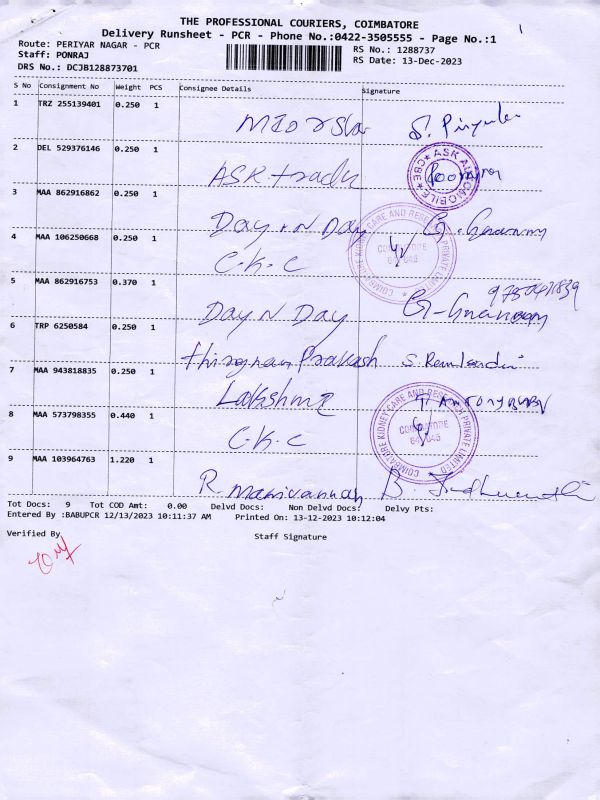 THE PROFESSIONAL COURIERS, COIMBATORE
Delivery Runsheet - PCR - Phone No.:0422-3505555 - Page No.:1
Route: PERIYAR NAGAR - PCR
RS No.: 1288737
Staff: PONRAJ
RS Date: 13-Dec-2023
DRS No.: DCJB128873701
S No Consignment No Weight PCS Consignee Details Signature
1 TRZ 255139401 0.250 1
2 DEL 529376146 0.250 1 ASK
ASK AUTOMOBILE CBE
3 MAA 862916862 0.250 1 Day N Day
4 MAA 106250668 0.250 1 C.K.C
COIMBATORE KIDNEY CARE AND RESEARCH PRIVATE LIMITED COIMBATORE 641045
5 MAA 862916753 0.370 1 Day N Day
6 TRP 6250584 0.250 1 Prakash
7 MAA 943818835 0.250 1 Lakshmi
8 MAA 573798355 0.440 1 C.K.C
COIMBATORE KIDNEY CARE AND RESEARCH PRIVATE LIMITED COIMBATORE 641045
9 MAA 103964763 1.220 1 R Manivannan B.
Tot Docs: 9 Tot COD Amt: 0.00 Delvd Docs: Non Delvd Docs: Delvy Pts:
Entered By :BABUPCR 12/13/2023 10:11:37 AM Printed On: 13-12-2023 10:12:04
Verified By
Staff Signature